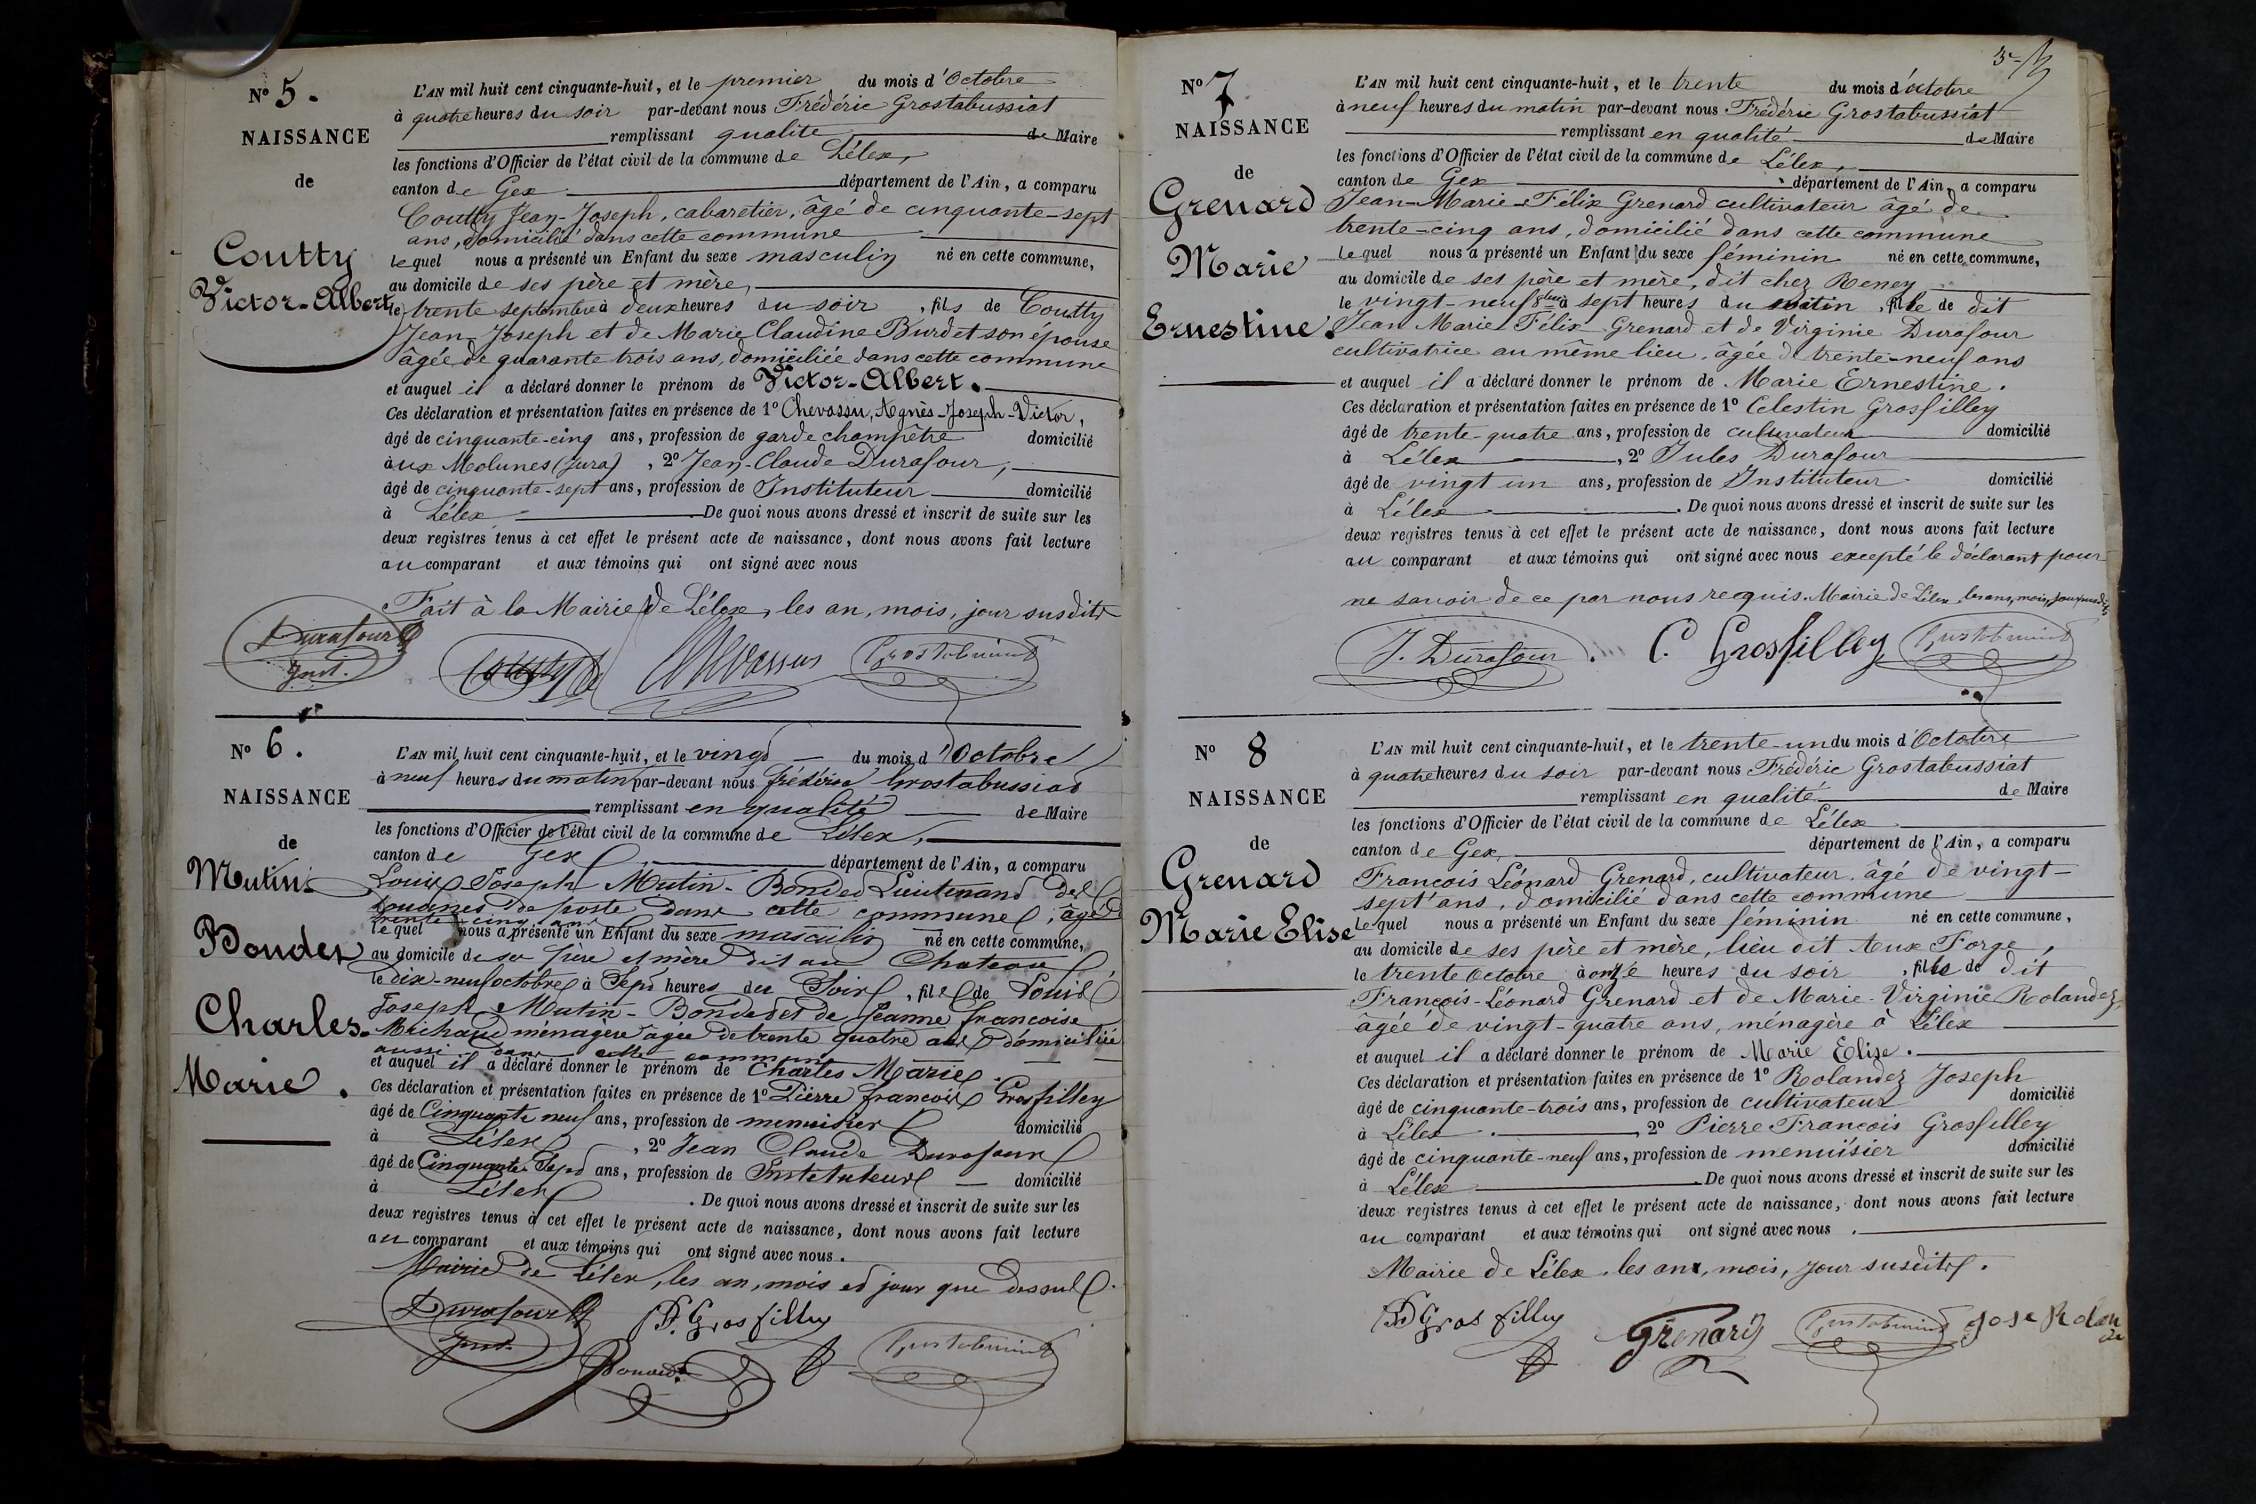 Nº 5.
NAISSANCE
de
Coutty
Victor-Albert
L'AN mil huit cent cinquante-huit, et le premier du mois d'Octobre
à quatre heures du soir par-devant nous Frédéric Grostabussiat
remplissant qualité de Maire
les fonctions d'Officier de l'état civil de la commune de Lélex,
canton de Gex département de l'Ain, a comparu
Coutty Jean-Joseph, cabaretier, âgé de cinquante-sept
ans, domicilié dans cette commune
lequel nous a présenté un Enfant du sexe masculin né en cette commune,
au domicile de ses père et mère,
le trente septembre à deux heures du soir, fils de Coutty
Jean-Joseph et de Marie Claudine Burdet son épouse
âgée de quarante trois ans, domiciliée dans cette commune
et auquel il a déclaré donner le prénom de Victor-Albert.
Ces déclaration et présentation faites en présence de 1º Chevassu, Agnès-Joseph-Victor,
âgé de cinquante-cinq ans, profession de garde champêtre domicilié
aux Molunes (Jura), 2º Jean-Claude Durafour,
âgé de cinquante-sept ans, profession de Instituteur domicilié
à Lélex De quoi nous avons dressé et inscrit de suite sur les
deux registres tenus à cet effet le présent acte de naissance, dont nous avons fait lecture
au comparant et aux témoins qui ont signé avec nous
Fait à la Mairie de Lélex, les an, mois, jour susdits
Durafour
Inst.
Coutty
Chevassus
Grostabussiat
Nº 6.
NAISSANCE
de
Mutin
Boudez
Charles
Marie.
L'AN mil huit cent cinquante-huit, et le vingt du mois d'Octobre
à neuf heures du matin par-devant nous frédéric Grostabussiat
remplissant en qualité de Maire
les fonctions d'Officier de l'état civil de la commune de Lélex,
canton de Gex département de l'Ain, a comparu
Louis Joseph Mutin-Bondet Lieutenant des
douanes de poste dans cette commune, âgé de
trente-cinq ans
lequel nous a présenté un Enfant du sexe masculin né en cette commune,
au domicile de ses père et mère dit au Chateau
le dix-neuf octobre à Sept heures du Soir, fils de Louis
Joseph Mutin-Bondet et de Jeanne françoise
Michaud ménagère âgée de trente quatre ans domiciliée
aussi dans cette commune
et auquel il a déclaré donner le prénom de Charles Marie
Ces déclaration et présentation faites en présence de 1º Pierre françois Grosfilley
âgé de Cinquante neuf ans, profession de menuisier domicilié
à Lélex, 2º Jean Claude Durafour
âgé de Cinquante Sept ans, profession de Instituteur domicilié
à Lélex. De quoi nous avons dressé et inscrit de suite sur les
deux registres tenus à cet effet le présent acte de naissance, dont nous avons fait lecture
au comparant et aux témoins qui ont signé avec nous.
Mairie de Lélex, les an, mois et jour que dessus.
Durafour
Inst.
P.F. Grosfilley
Bondet
Grostabussiat
Nº 7
NAISSANCE
de
Grenard
Marie
Ernestine.
L'AN mil huit cent cinquante-huit, et le trente du mois d'Octobre
à neuf heures du matin par-devant nous Frédéric Grostabussiat
remplissant en qualité de Maire
les fonctions d'Officier de l'état civil de la commune de Lélex,
canton de Gex département de l'Ain, a comparu
Jean-Marie-Félix Grenard cultivateur âgé de
trente-cinq ans, domicilié dans cette commune
lequel nous a présenté un Enfant du sexe féminin né en cette commune,
au domicile de ses père et mère, dit chez Reney
le vingt-neuf 8bre à sept heures du matin, fille de dit
Jean Marie Félix Grenard et de Virginie Durafour
cultivatrice au même lieu, âgée de trente-neuf ans
et auquel il a déclaré donner le prénom de Marie Ernestine.
Ces déclaration et présentation faites en présence de 1º Celestin Grosfilley
âgé de trente-quatre ans, profession de cultivateur domicilié
à Lélex, 2º Jules Durafour
âgé de vingt un ans, profession de Instituteur domicilié
à Lélex. De quoi nous avons dressé et inscrit de suite sur les
deux registres tenus à cet effet le présent acte de naissance, dont nous avons fait lecture
au comparant et aux témoins qui ont signé avec nous excepté le déclarant pour
ne savoir de ce par nous requis. Mairie de Lélex, les ans, mois, jour susdits
J. Durafour
C. Grosfilley
Grostabussiat
Nº 8
NAISSANCE
de
Grenard
Marie Elise
L'AN mil huit cent cinquante-huit, et le trente-un du mois d'Octobre
à quatre heures du soir par-devant nous Frédéric Grostabussiat
remplissant en qualité de Maire
les fonctions d'Officier de l'état civil de la commune de Lélex
canton de Gex, département de l'Ain, a comparu
François Léonard Grenard, cultivateur, âgé de vingt-
sept ans, domicilié dans cette commune
lequel nous a présenté un Enfant du sexe féminin né en cette commune,
au domicile de ses père et mère, lieu dit Aux Forge,
le trente Octobre à onze heures du soir, fille de dit
François-Léonard Grenard et de Marie-Virginie Rolandez,
âgée de vingt-quatre ans, ménagère à Lélex
et auquel il a déclaré donner le prénom de Marie Elise.
Ces déclaration et présentation faites en présence de 1º Rolandez Joseph
âgé de cinquante-trois ans, profession de cultivateur domicilié
à Lélex, 2º Pierre François Grosfilley
âgé de cinquante-neuf ans, profession de menuisier domicilié
à Lélex De quoi nous avons dressé et inscrit de suite sur les
deux registres tenus à cet effet le présent acte de naissance, dont nous avons fait lecture
au comparant et aux témoins qui ont signé avec nous.
Mairie de Lélex, les ans, mois, jour susdits.
P.F. Grosfilley
Grenard
Grostabussiat
Jose Rolan
de